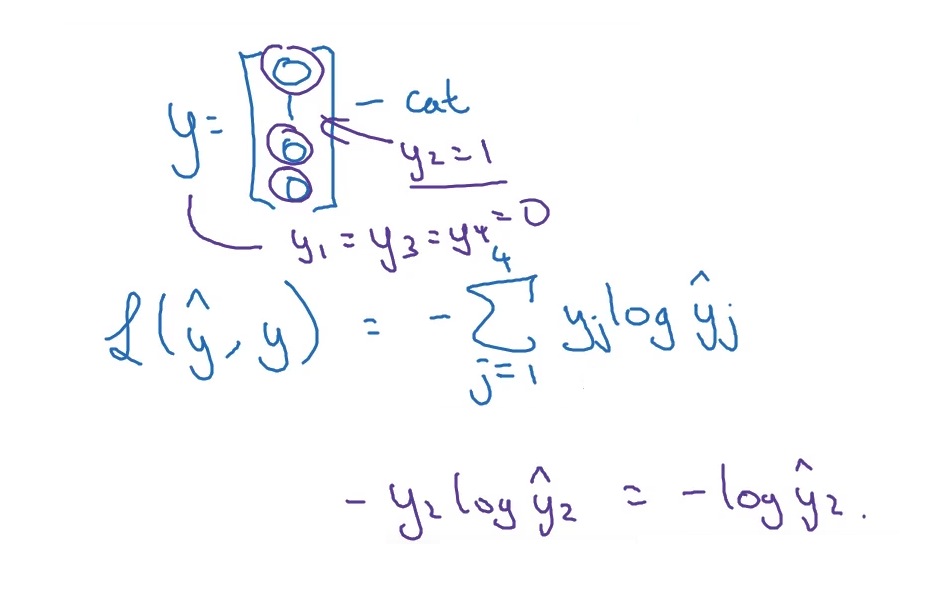 y = [0 1 0 0] - cat
y₂ = 1
y₁ = y₃ = y₄ = 0
ℒ(ŷ, y) = - ∑_{j=1}^{4} yⱼ log ŷⱼ
- y₂ log ŷ₂ = - log ŷ₂.